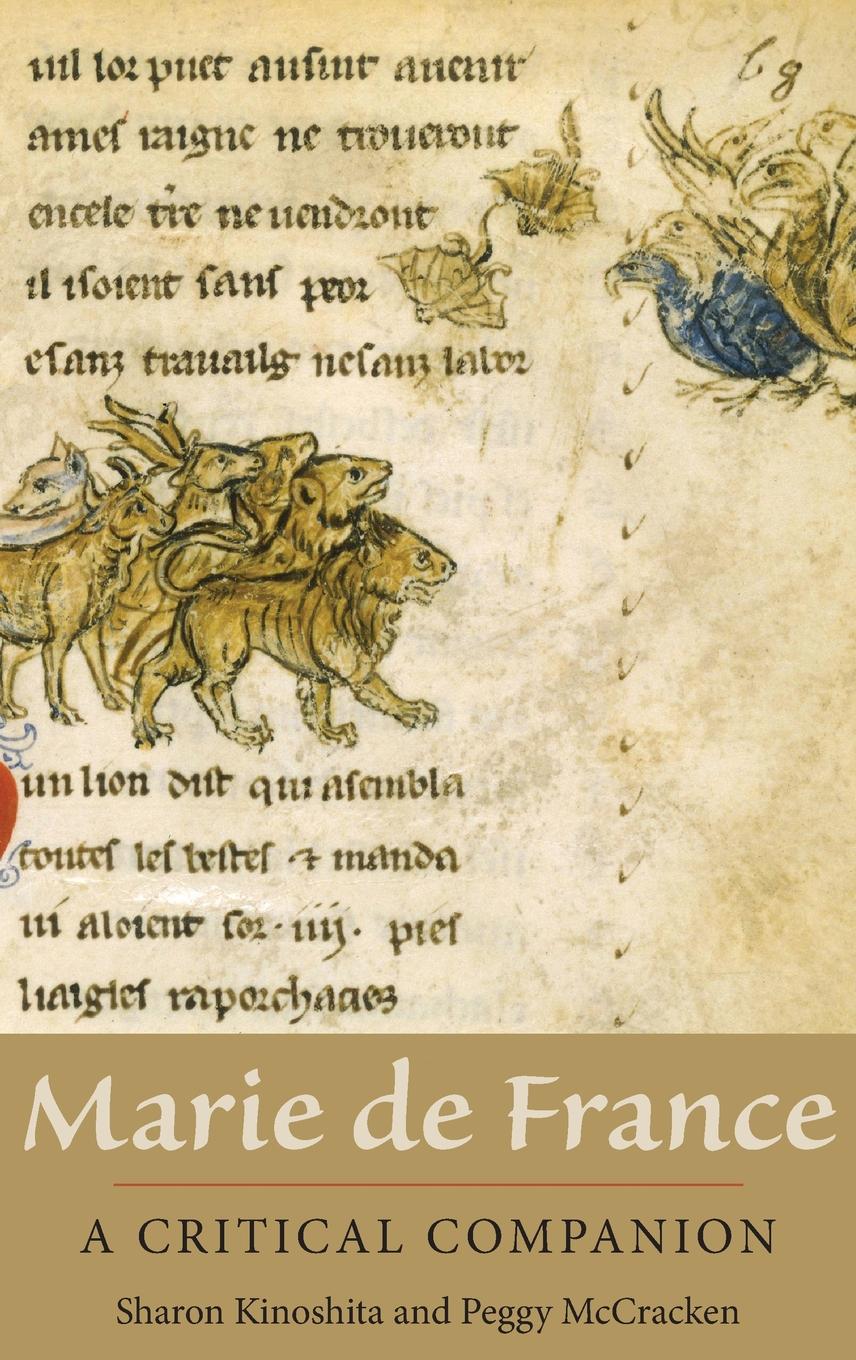 uil lor puet ausint auenir
ames raigne ne troueront
encele tre ne uendront
il isoient sans peor
esanz trauailg nesanz labor
un lion dist qui asembla
toutes les bestes ⁊ manda
ui aloient sor · iiij · pies
Marie de France
A CRITICAL COMPANION
Sharon Kinoshita and Peggy McCracken